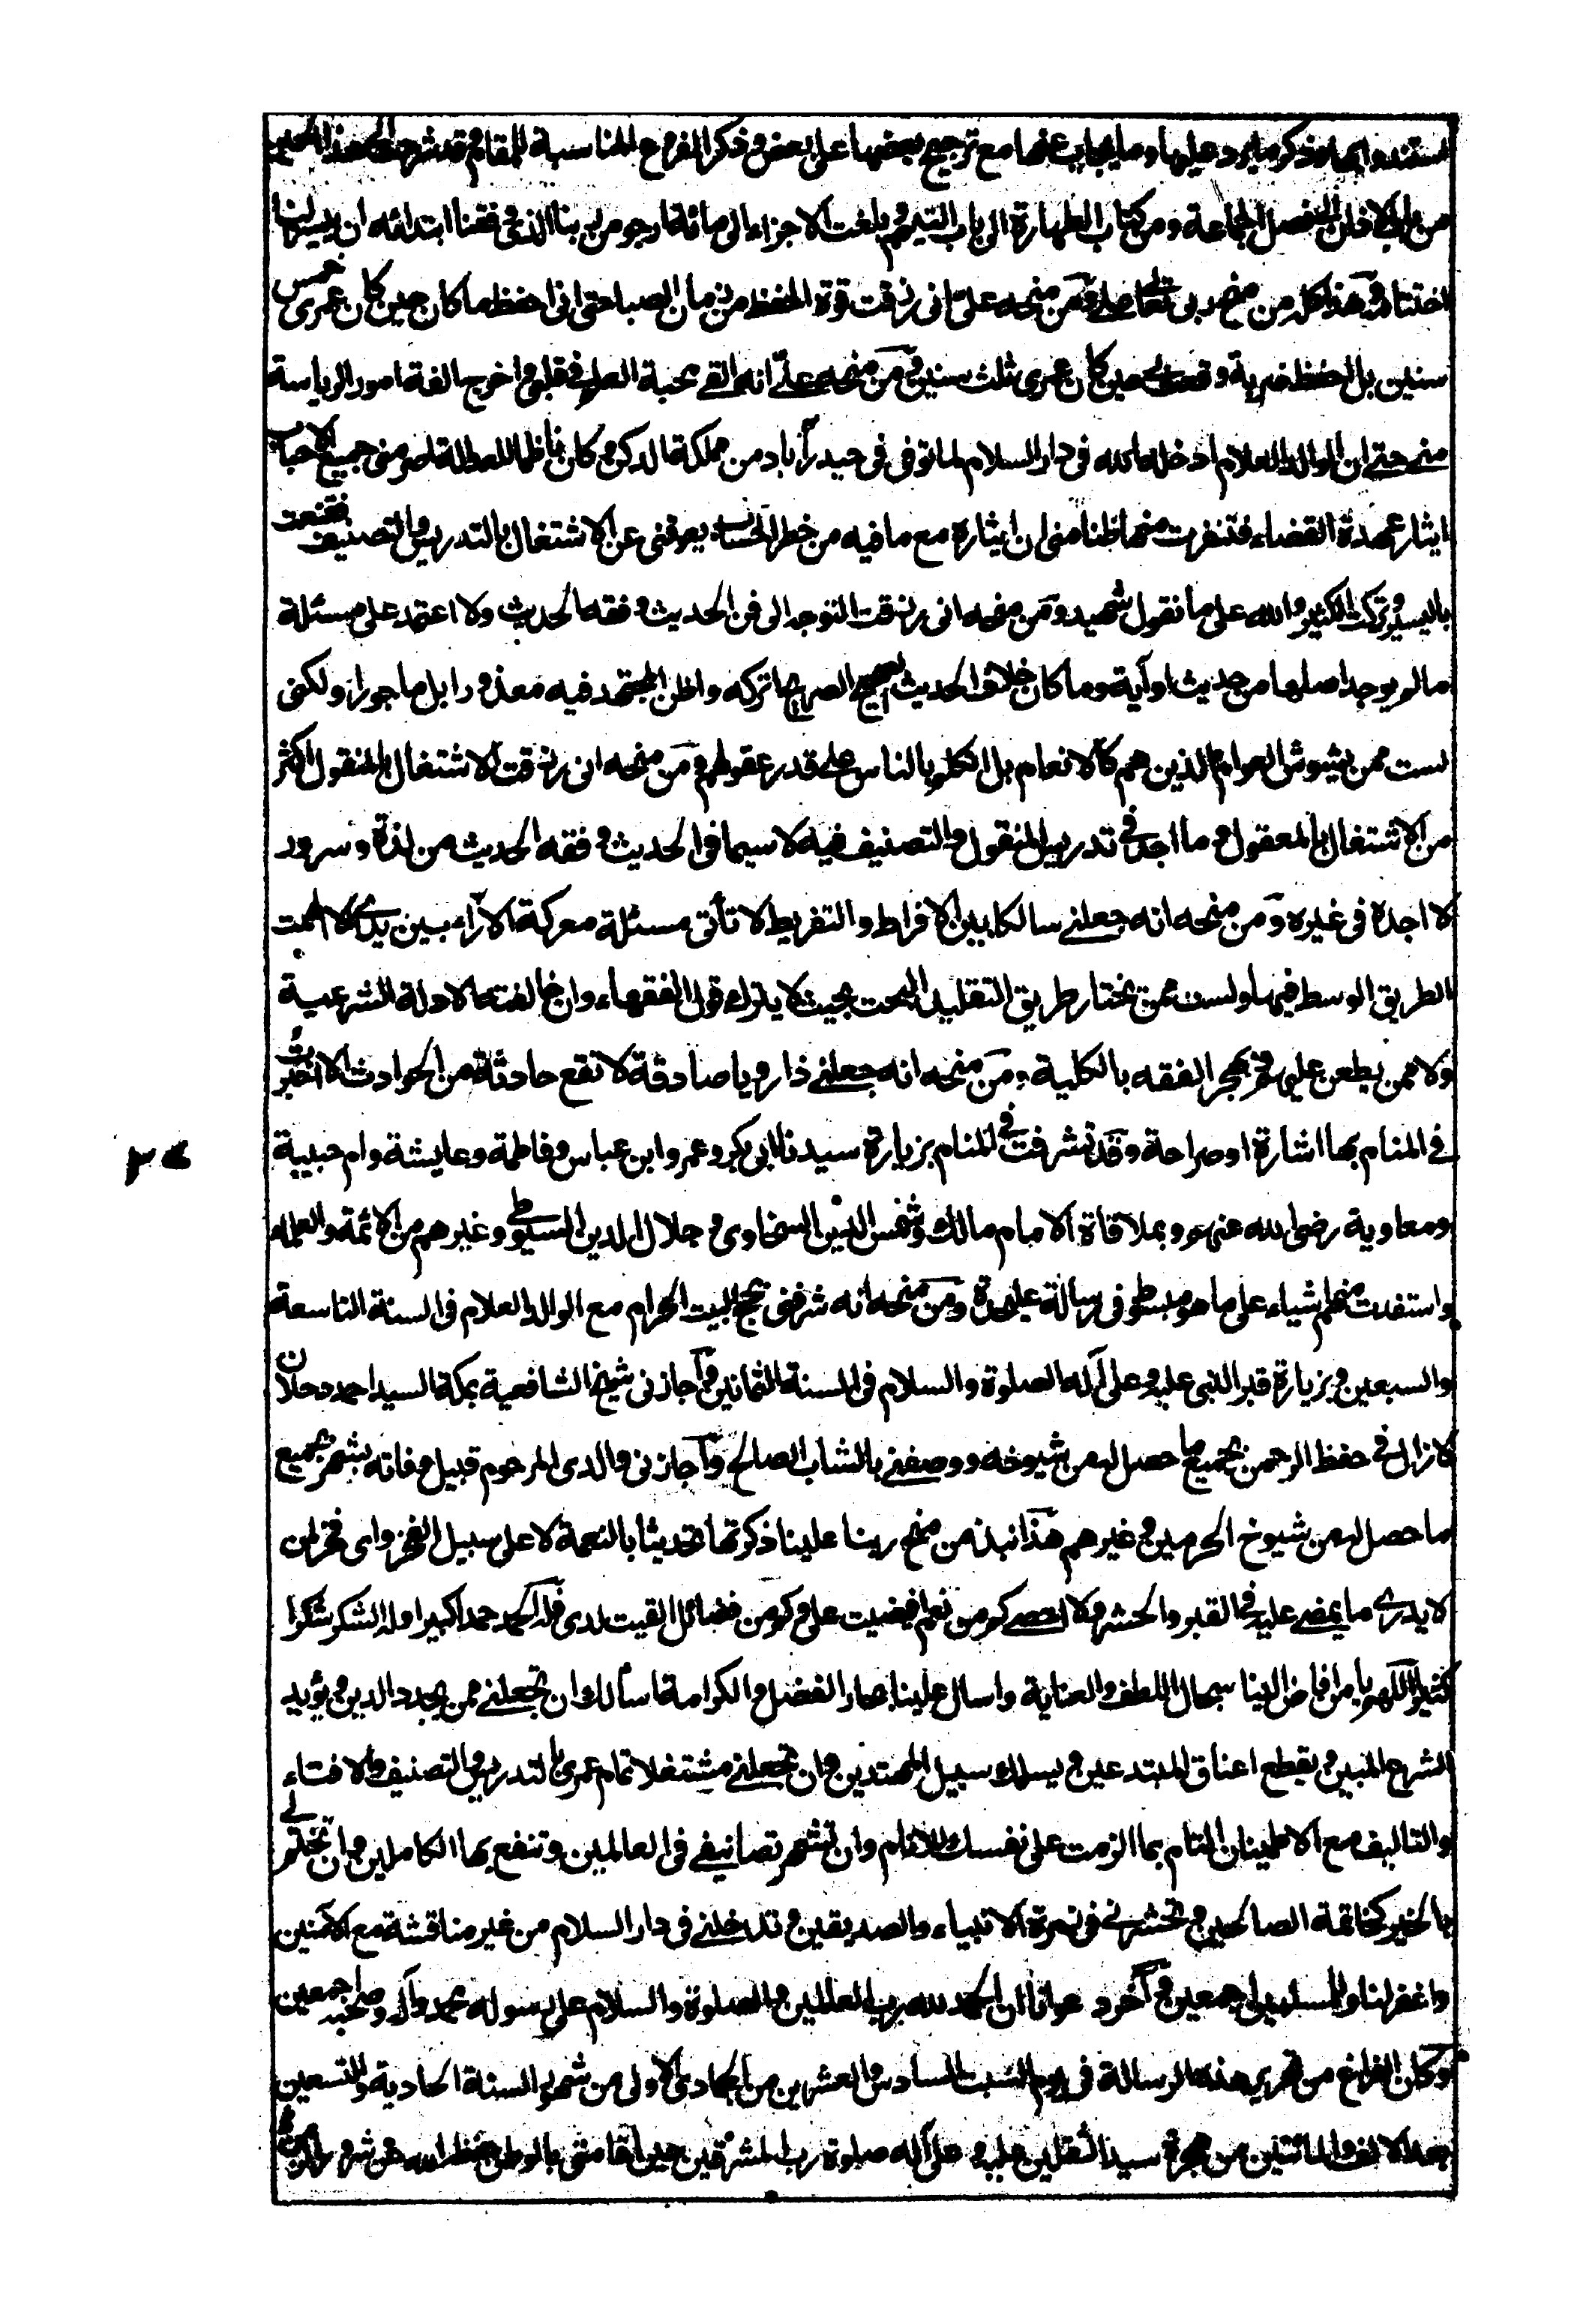 استندوا بها وذكر ما يرد عليها وما يجاب عنها مع ترجيح بعضها على بعض وذكر الفروع المناسبة للمقام وقد شرحت الى هذا الحين
من باب الاذان الى فصل الجماعة ومن كتاب الطهارة الى باب التيمم وبلغت الاجزاء الى مائة ارجو من ربنا الذي وفقنا ابتدائه ان ييسر لنا
اختتامه وهذا كله من منح ربي تعالى علي ومن منحه علىّ انى رزقت قوة الحفظ من زمان الصبا حتى انى احفظ ما كان حين كان عمرى خمس
سنين بل احفظ ضربة وقعت لي حين كان عمرى ثلث سنين ومن منحه علىّ انه القى محبة العلم فى قلبى واخرج الفة امور الرياسة
منى حتى ان الوالد العلام ادخله الله فى دار السلام لما توفى فى حيدرآباد من مملكة الدكن وكان ناظما للعدالة اصر منى جميع الاحباب
ايثار عهدة القضاء فتنفرت منها ظنا منى ان ايثاره مع ما فيه من خطر الحساب يعوقنى عن الاشتغال بالتدريس والتصنيف فقنعت
باليسير وتركت الكثير والله على ما نقول شهيد ومن منحه انى رزقت التوجه الى فن الحديث وفقه الحديث ولا اعتمد على مسئلة
ما لم يوجد اصلها من حديث او آية وما كان خلاف الحديث الصحيح الصريح اتركه واظن المجتهد فيه معذورا بل ماجورا ولكنى
لست ممن يشوش العوام الذين هم كالانعام بل اكلم بالناس على قدر عقولهم ومن منحه انى رزقت الاشتغال بالمنقول اكثر
من الاشتغال بالمعقول وما اجد فى تدريس المنقول والتصنيف فيه لا سيما فى الحديث وفقه الحديث من لذة وسرور
لا اجده فى غيره ومن منحه انه جعلنى سالكا بين الافراط والتفريط لا تأتى مسئلة معركة الآراء بين يدى الا الهمت
الطريق الوسط فيها ولست ممن يختار طريق التقليد البحت بحيث لا يترك قول الفقهاء وان خالفته الادلة الشرعية
ولا ممن يطعن عليهم ويهجر الفقه بالكلية ومن منحه انه جعلنى ذا رويا صادقة لا تقع حادثة من الحوادث الا اخبرت
فى المنام بها اشارة او صراحة وقد تشرفت فى المنام بزيارة سيدنا ابى بكر وعمر وابن عباس وفاطمة وعايشة وام حبيبة
ومعاوية رضى الله عنهم وبملاقاة الامام مالك وشمس الدين السخاوى وجلال الدين السيوطى وغيرهم من الائمة والعلماء
واستفدت منهم اشياء على ما هو مبسوط فى رسالة عليحدة ومن منحه انه شرفنى بحج البيت الحرام مع الوالد العلام فى السنة التاسعة
والسبعين وبزيارة قبر النبى عليه وعلى آله الصلوة والسلام فى السنة الثمانين واجازنى شيخ الشافعية بمكة السيد احمد دحلان
لا زال فى حفظ الرحمن بجميع ما حصل له من شيوخه ووصفنى بالشاب الصالح واجازنى والدى المرحوم قبيل وفاته بشهر بجميع
ما حصل له من شيوخ الحرمين وغيرهم هذا نبذ من منح ربنا علينا ذكرتها تحديثا بالنعمة لا على سبيل الفخر واى فخر لمن
لا يدرى ما يمضى عليه فى القبر والحشر ولا احصى كم من نعم افيضت على وكم من فضائل القيت لدى فله الحمد حمدا كبيرا وله الشكر شكرا
كثيرا اللهم يا من افاض الينا سجال اللطف والعناية واسال علينا بحار الفضل والكرامة اسألك ان تجعلنى ممن يجدد الدين ويؤيد
الشرع المبين ويقطع اعناق المبتدعين ويسلك سبيل المهتدين وان تجعلنى مشتغلا تمام عمرى بالتدريس والتصنيف والافتاء
والتاليف مع الاطمينان التام بما الزمت على نفسك للانام وان تشهر تصانيفى فى العالمين وتنفع بها الكاملين وان تختم لى
بالخير كخاتمة الصالحين وتحشرنى فى زمرة الانبياء والصديقين وتدخلنى فى دار السلام من غير مناقشة مع الآمنين
واغفر لنا وللمسلمين اجمعين وآخر دعوانا ان الحمد لله رب العالمين والصلوة والسلام على رسوله محمد وآله وصحبه اجمعين
وكان الفراغ من تحرير هذه الرسالة فى يوم السبت السادس والعشرين من الجمادى الاولى من شهور السنة الحادية والتسعين
بعد الالف والمائتين من هجرة سيد الثقلين عليه وعلى آله صلوة رب المشرقين حين اقامتى بالوطن حفظه الله عن شرور